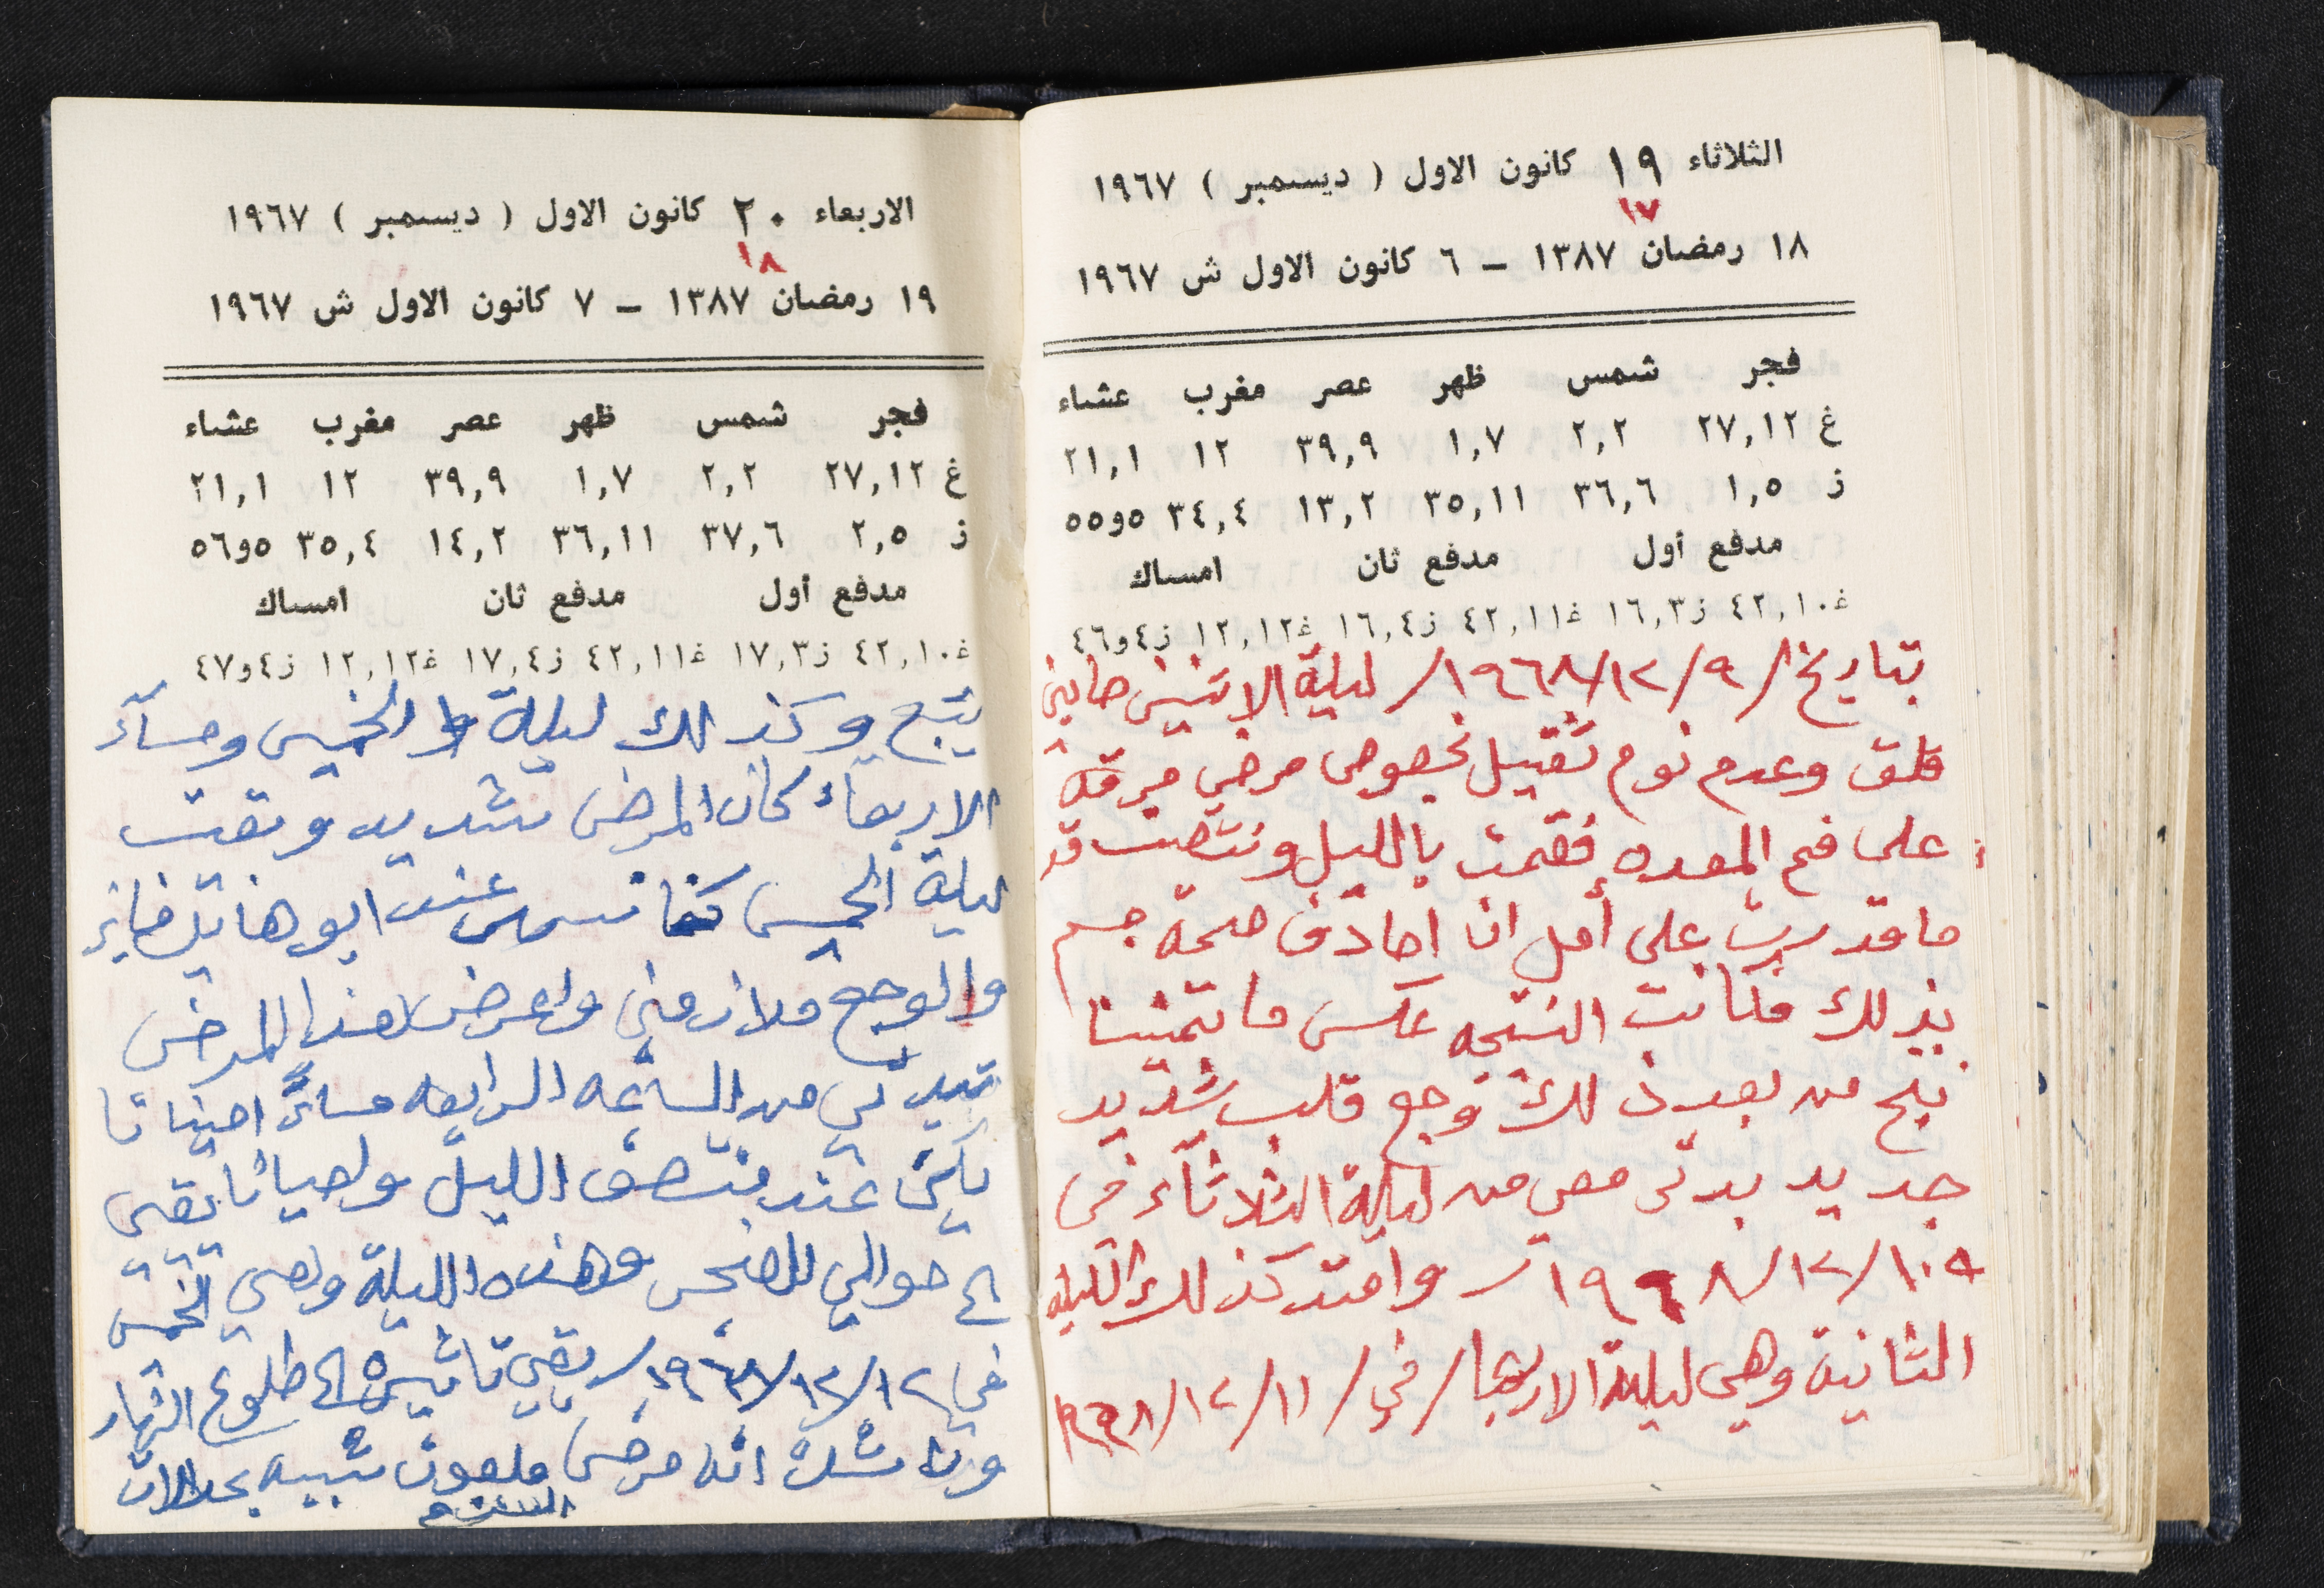 الثلاثاء ١٩ كانون الاول ( ديسمبر ) ١٩٦٧
١٧
١٨ رمضان ١٣٨٧ – ٦ كانون الاول ش ١٩٦٧
فجر شمس ظهر عصر مغرب عشاء
غ ٢٧,١٢ ٢,٢ ١,٧ ٣٩,٩ ١٢ ٢١,١
ز ١,٥ ٣٦,٦ ٣٥,١١ ١٣,٢ ٣٤,٤ ٥و٥٥
مدفع أول مدفع ثان امساك
غ٤٢,١٠ ز١٦,٣ غ٤٢,١١ ز١٦,٤ غ١٢,١٢ ز٤و٤٦
بتاريخ / ٩/ ١٢/ ١٩٦٨/ ليلة الاثنين
قلق وعدم نوم ثقيل بخصوص مرضي
على فم المعده فقمت بالليل قد
ما قدرت على أمل ان اصادف صحة جسم
بذلك فكانت النتيجه عكس ما تمنينا
من بعد ذلك وجع قلب شديد
جديد بدئ معي من ليلة الثلاثآء في
١٠/ ١٢/ ١٩٦٨ / وامتد كذلك الليلة
الثانية وهي ليلة الاربعا / في / ١١/ ١٢/ ١٩٦٨
الاربعاء ٢٠ كانون الاول ( ديسمبر ) ١٩٦٧
١٨
١٩ رمضان ١٣٨٧ – ٧ كانون الاول ش ١٩٦٧
فجر شمس ظهر عصر مغرب عشاء
غ ٢٧,١٢ ٢,٢ ١,٧ ٣٩,٩ ١٢ ٢١,١
ز ٢,٥ ٣٧,٦ ٣٦,١١ ١٤,٢ ٣٥,٤ ٥و٥٦
مدفع أول مدفع ثان امساك
غ٤٢,١٠ ز١٧,٣ غ٤٢,١١ ز١٧,٤ غ١٢,١٢ ز٤و٤٧
يتبع وكذلك ليلة الخميس ومسآء
الاربعاء كان المرض شديد وبقت
ليلة الخميس كنا نسهر عند ابو هاني فايز
والوجع ملازمني واعرض هذا المرض
تبدئي من الساعه الرابعه مساءً احيانا
عند منتصف الليل واحيانًا يبقى
الى حوالي الصبح وهذه الليلة وهي الخميس
في ١٢/ ١٢/ ١٩٦٨/ بقي تاثيره الى طلوع النهار
ولا شك انه مرض ملعون شبيه بحالات